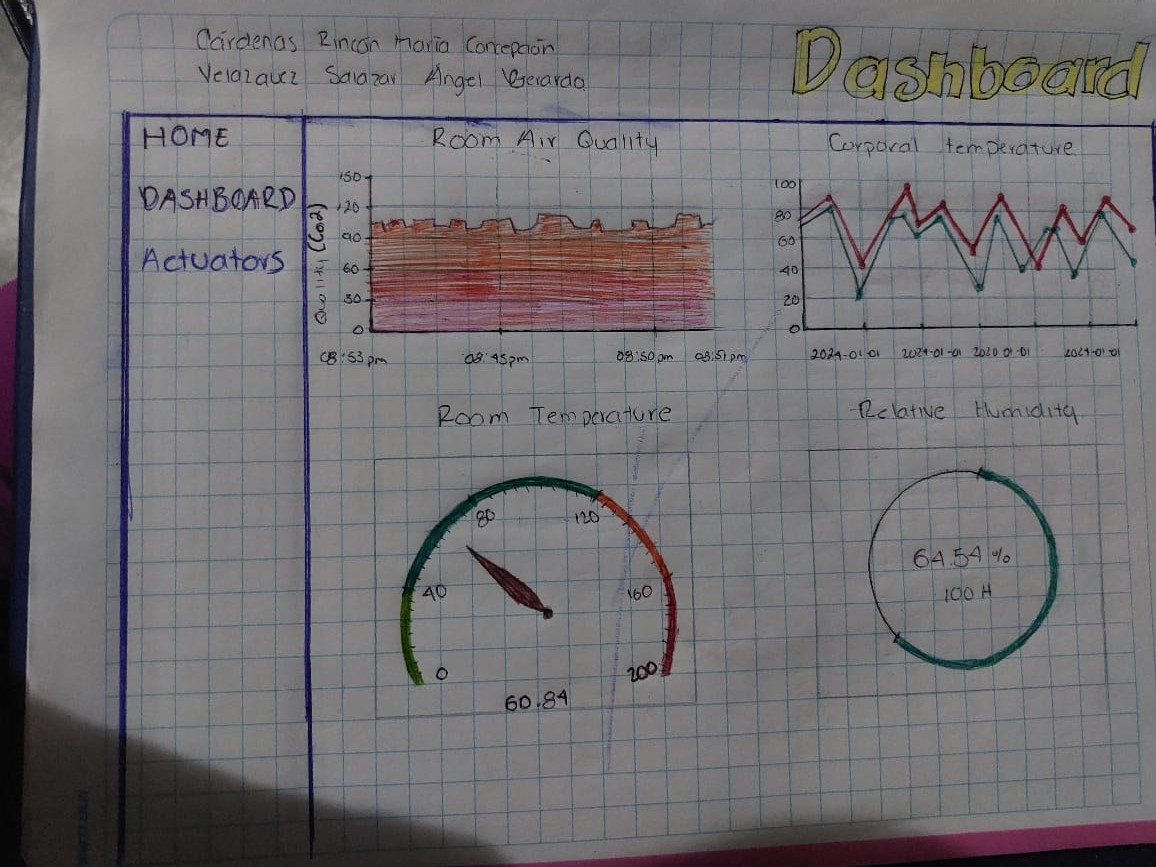 Cárdenas Rincón María Concepción
Velazquez Salazar Angel Gerardo
Dashboard
HOME
DASHBOARD
Actuators
Room Air Quality
150
120
90
60
30
0
08:53 pm 08:45pm 08:50 pm 08:51 pm
Corporal temperature
100
80
60
40
20
0
2024-01-01 2024-01-01 2020-01-01 2024-01-01
Room Temperature
80
120
40
160
0
200
60.84
Relative Humidity
64.54 %
100 H